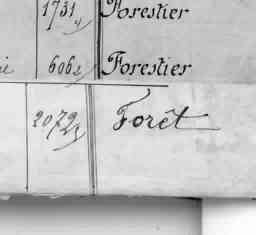 1731 Forestier
6062 Forestier
2072 Forêt